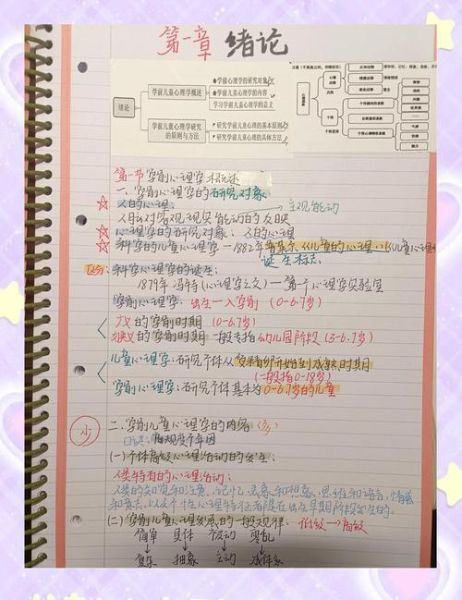 第一章 绪论
绪论
学前儿童心理学概述
学前心理学的研究对象
学前儿童心理学的内容
学习学前儿童心理学的意义
学前儿童心理学研究的原则与方法
研究学前儿童心理的基本原则
研究学前儿童心理的具体方法
第一节 学前心理学概述
一、学前心理学的研究对象
人的心理: 主观能动
人脑对客观现实能动的反映
心理学的研究对象: 人的心理
科学的儿童心理学 — 1882年普莱尔《儿童的心理》
诞生标志
区分: 科学心理学的诞生:
1879年冯特(心理学之父) — 第一个心理学实验室
学前心理学: 出生—入学前 (0-6.7岁)
广义的学前时期 (0-6.7岁)
狭义的学前时期 一般专指幼儿园阶段 (3-6.7岁)
儿童心理学: 研究个体从受精卵开始到成熟时期
(一般指0-18岁)
学前心理学: 研究个体基本为0-6.7岁的儿童
少
二、学前儿童心理学的内容
(一) 个体高级心理活动的发生:
人类特有的心理活动:
人类的知觉和注意、记忆、表象和想象、思维和语言、情感
和意志、以及个性心理特征都是在出生早期阶段发生的。
(二) 学前儿童心理发展的一般规律. 低级→高级
简单 具体 被动 零乱
复杂 抽象 主动 成体系